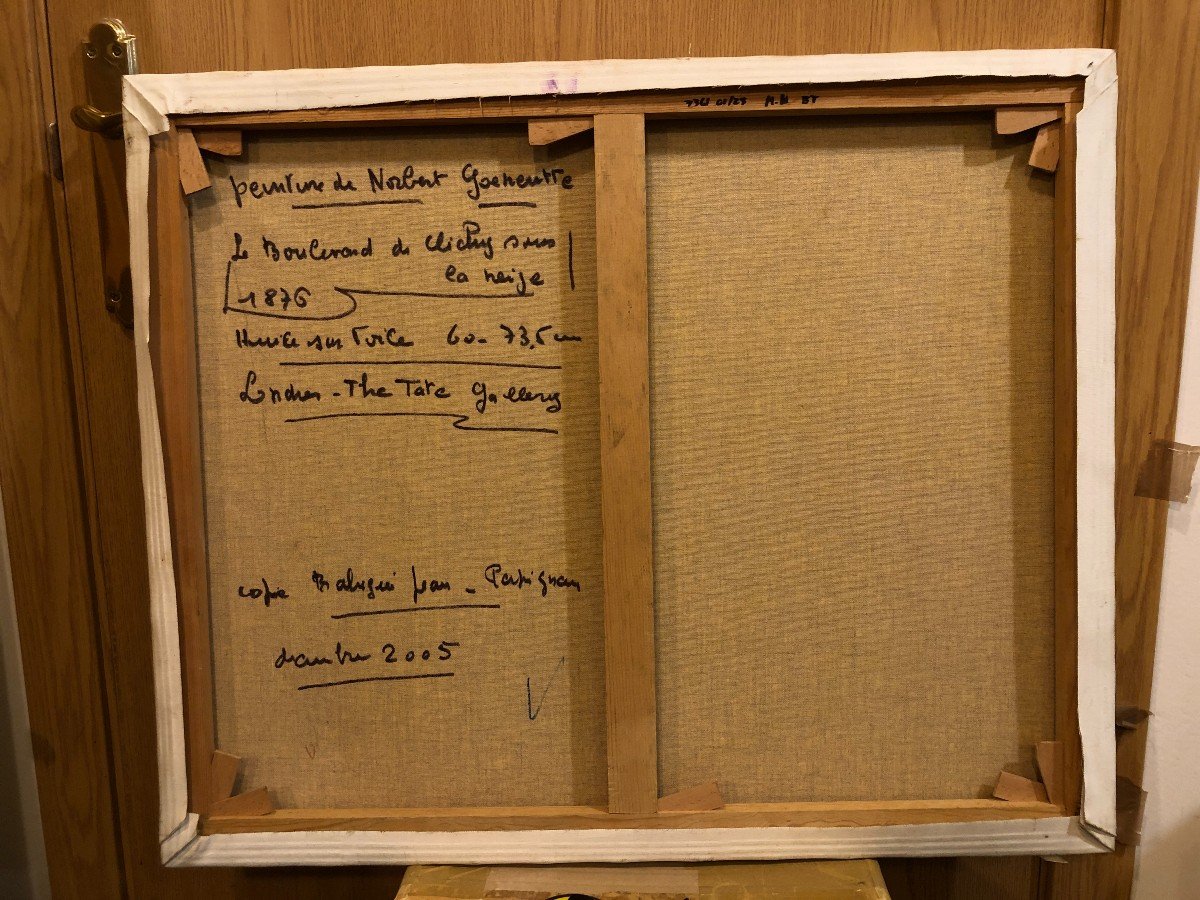 peinture de Norbert Goeneutte
Le Boulevard de Clichy sous
la neige
1876
Huile sur Toile 60 - 73,5 cm
Londres - The Tate Gallery
copie jean - Perpignan
décembre 2005